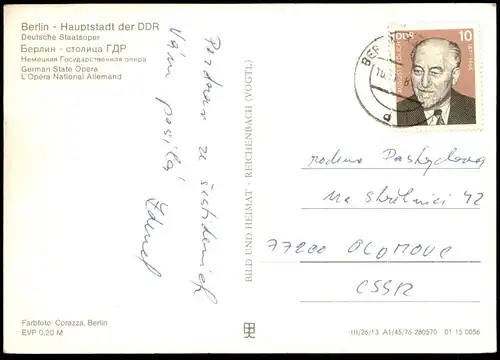 Berlin - Hauptstadt der DDR
Deutsche Staatsoper
Берлин - столица ГДР
Немецкая Государственная опера
German State Opera
L'Opera National Allemand
Pozdrav z
Vám posílá
Zdeněk
BILD UND HEIMAT · REICHENBACH (VOGTL)
DDR 10
BER
rodina
Na Střelnici 42
77200 OLOMOUC
ČSSR
Farbfoto: Corazza, Berlin
EVP 0,20 M
III/26/13 A1/45/76-280570 01 15 0056